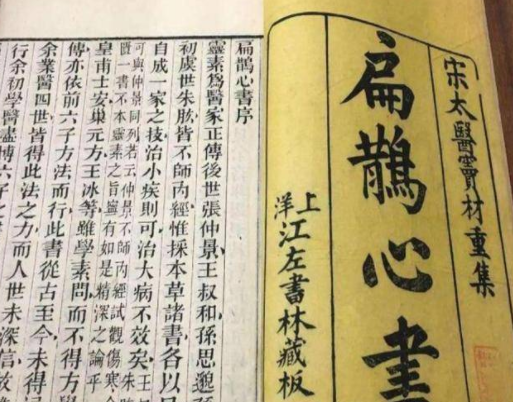 宋太醫竇材重集
扁鵲心書
上洋江左書林藏板
扁鵲心書序
靈素爲醫家正傳後世張仲景王叔和孫思邈孫
初虞世朱肱皆不師內經惟採本草諸書各以
自成一家之技治小疾則可治大病不效矣王
可與仲景同列若云仲景不師內經試觀傷寒金
匱一書不本靈素之旨寧有如是精深之論乎
皇甫士安巢元方王冰等雖學素問而不得方
傳亦依前六子方法而行此書從古至今未得
余業醫四世皆得此法之力而人世未深信故
行余初學醫盡博六子之